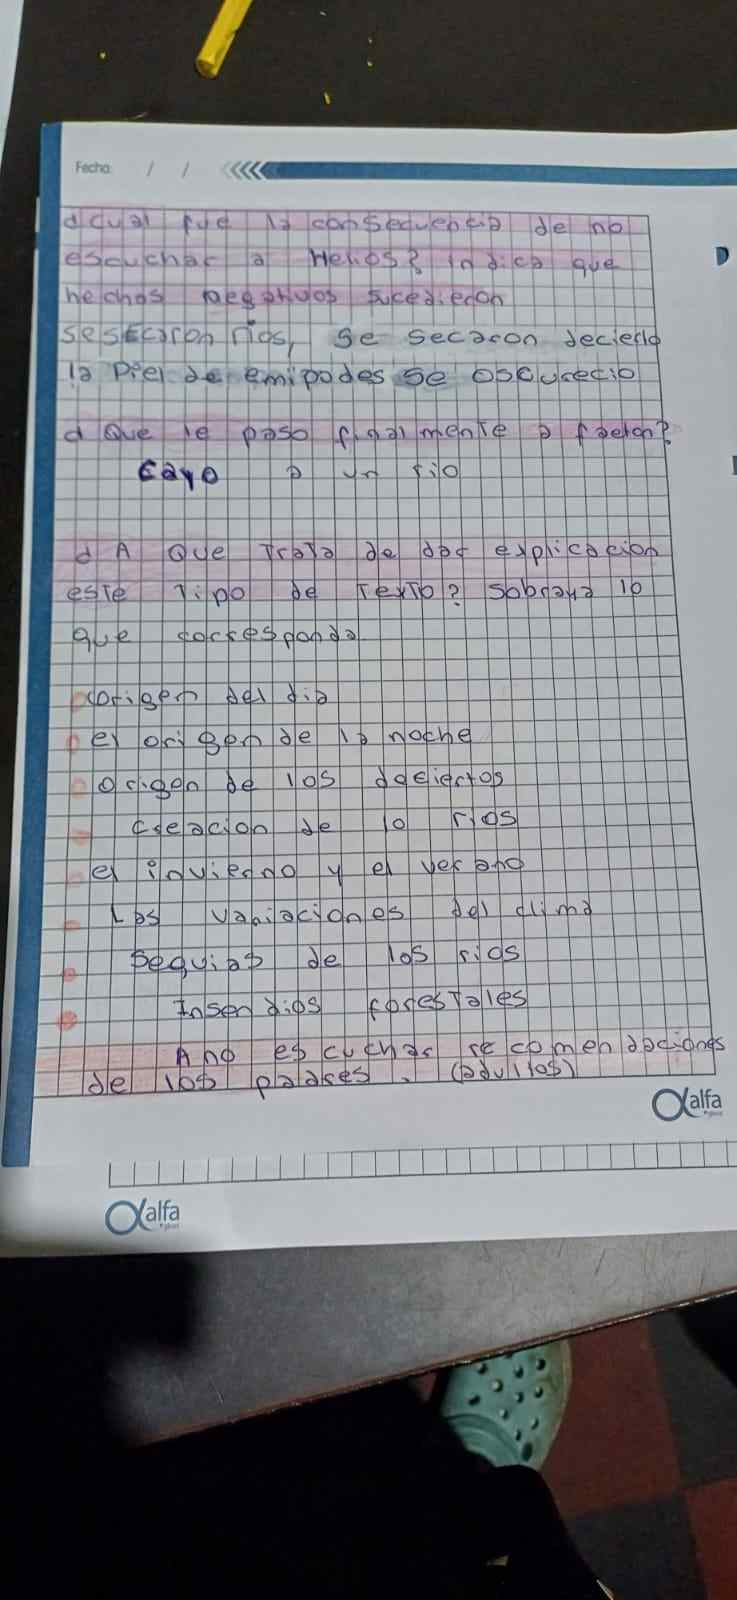 Fecha: / /
d cual fue la consecuencia de no
escuchar a Helios? indica que
hechos negativos sucedieron
sesecaron rios, se secaron decierto
la piel de emipodes se obscurecio
d Que le paso finalmente a faeton?
cayo a un rio
d A Que Trata de dar explicacion
este Tipo de TexTo? Sobraya lo
que corresponda
origen del dia
el origen de la noche
origen de los deciertos
creacion de lo rios
el invierno y el verano
Las variaciones del clima
Sequias de los rios
Insendios foresTales
A no escuchar recomendaciones
de los padres. (adultos)
alfa
alfa